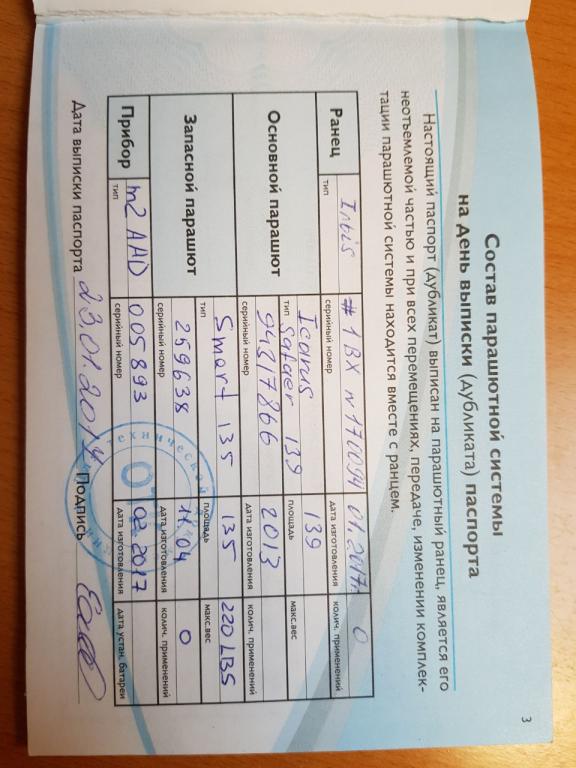 3
Состав парашютной системы
на день выписки (дубликата) паспорта
Настоящий паспорт (дубликат) выписан на парашютный ранец, является его
неотъемлемой частью и при всех перемещениях, передаче, изменении комплек-
тации парашютной системы находится вместе с ранцем.
Ранец
тип
серийный номер
# 1BX N 170094
дата изготовления
01.2017.
колич. применений
0
Основной парашют
тип
Icarus
Safaer 139
площадь
139
макс.вес
серийный номер
94317866
дата изготовления
2013
колич. применений
Запасной парашют
тип
Smart 135
площадь
135
макс.вес
220 LBS
серийный номер
259638
дата изготовления
11.04
колич. применений
0
Прибор
тип
m2 AAD
серийный номер
005893
дата изготовления
02.2017
дата устан. батареи
Дата выписки паспорта
Подпись